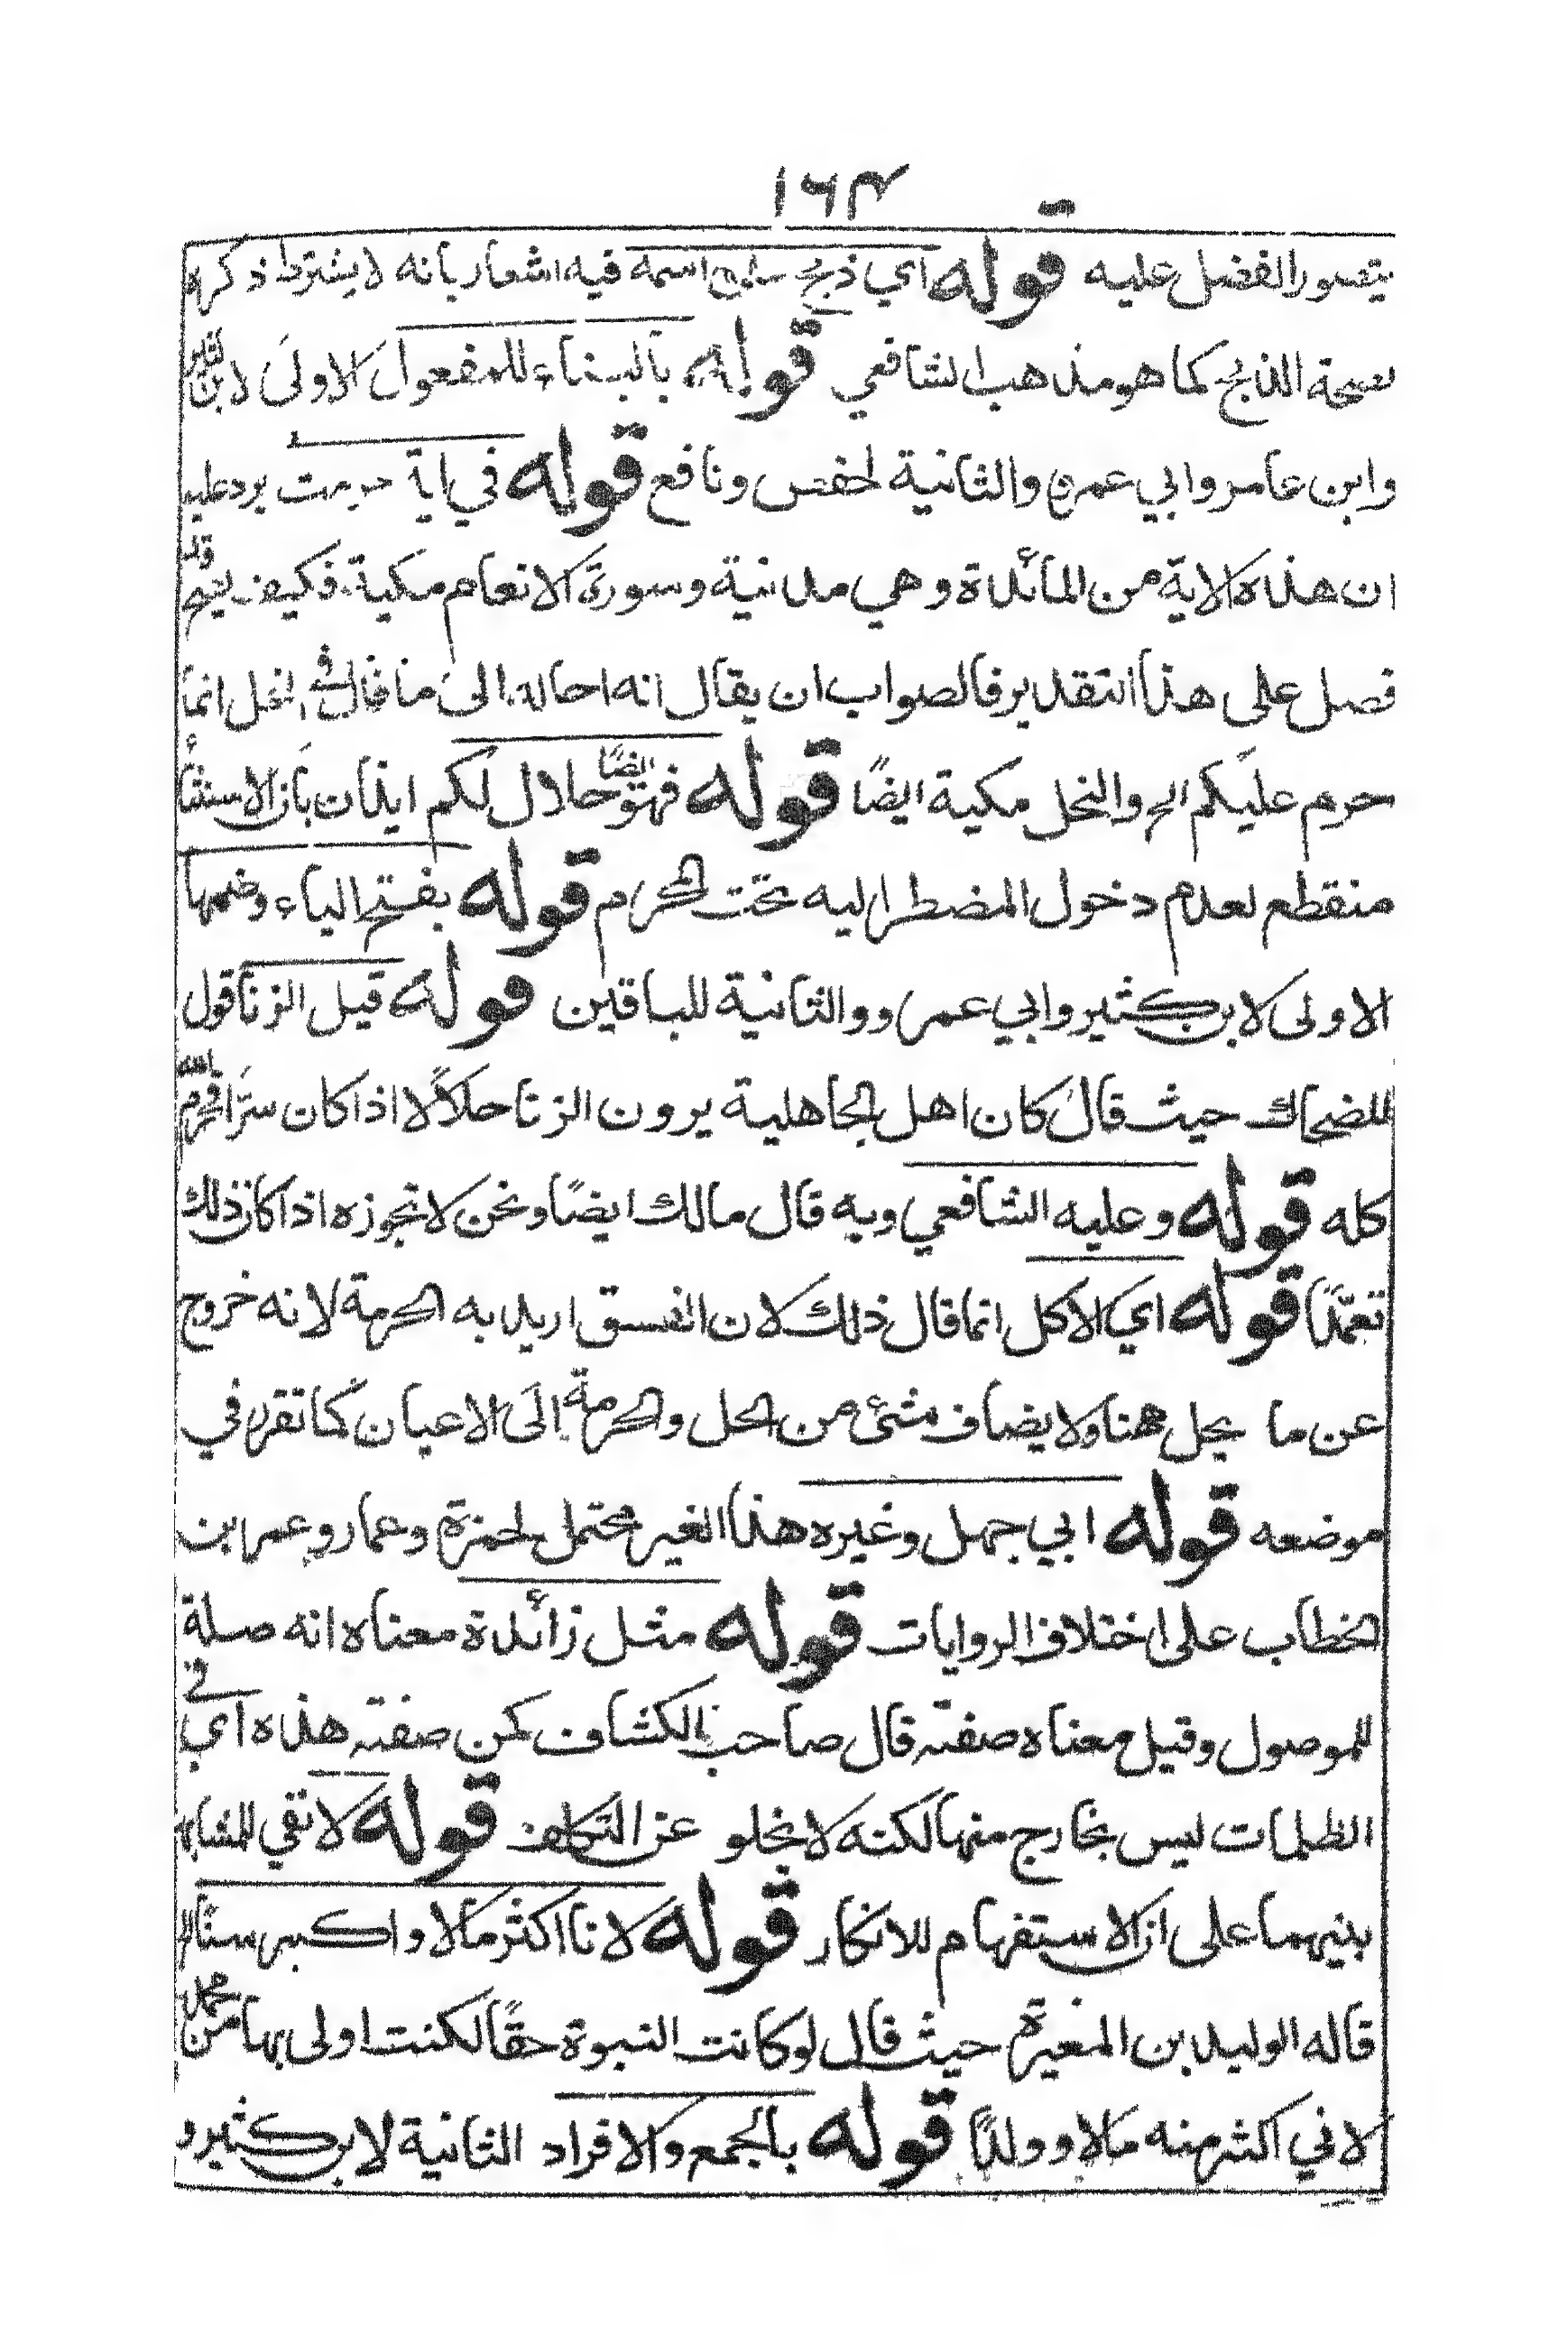 ١٦٣
يتصور الفضل عليه قوله اي ذبح على اسمه فيه اشعار بانه لا يشترط ذكره
لصحة الذابح كما هو مذهب الشافعي قوله بالبناء للمفعول الاولى لابن كثير
وابن عامر وابي عمرو والثانية لحفص ونافع قوله في اية حرمت يرد عليه
ان هذه الاية من المائدة وهي مدنية وسورة الانعام مكية فكيف يصح قد
فصل على هذا التقدير فالصواب ان يقال انه احالة الى ما قال في النحل انما
حرم عليكم الخ والنحل مكية ايضًا قوله فهو ايضًا حلال لكم ايذان بان الاستثنأ
منقطع لعدم دخول المضطر اليه تحت الحرام قوله بفتح الياء وضمها
الاولى لابن كثير وابي عمرو والثانية للباقين قوله قيل الزنا قول
للضحاك حيث قال كان اهل الجاهلية يرون الزنا حلالًا اذا كان سرًا فحرم الله
كله قوله وعليه الشافعي وبه قال مالك ايضًا ونحن لا نجوزه اذا كان ذلك
تعمّدًا قوله اي الاكل انما قال ذلك لان الفسق اريد به الحرمة لانه خروج
عن ما يحل ههنا ولا يضاف شئ من الحل والحرمة الى الاعيان كما تقرر في
موضعه قوله ابي جهل وغيره هذا الغير محتمل لحمزة وعمار وعمر ابن
الخطاب على اختلاف الروايات قوله مثل زائدة معناه انه صلة
للموصول وقيل معناه صفته قال صاحب الكشاف كمن صفته هذه اي في
الظلمات ليس بخارج منها لكنه لا يخلو عن التكلف قوله لا تقي للمشابهة
بينهما على ان الاستفهام للانكار قوله لانا اكثر مالا واكبر سنًا
قاله الوليد بن المغيرة حيث قال لو كانت النبوة حقًا لكنت اولى بها من محمد
لاني اكثر منه مالا وولدًا قوله بالجمع والافراد الثانية لابن كثير و